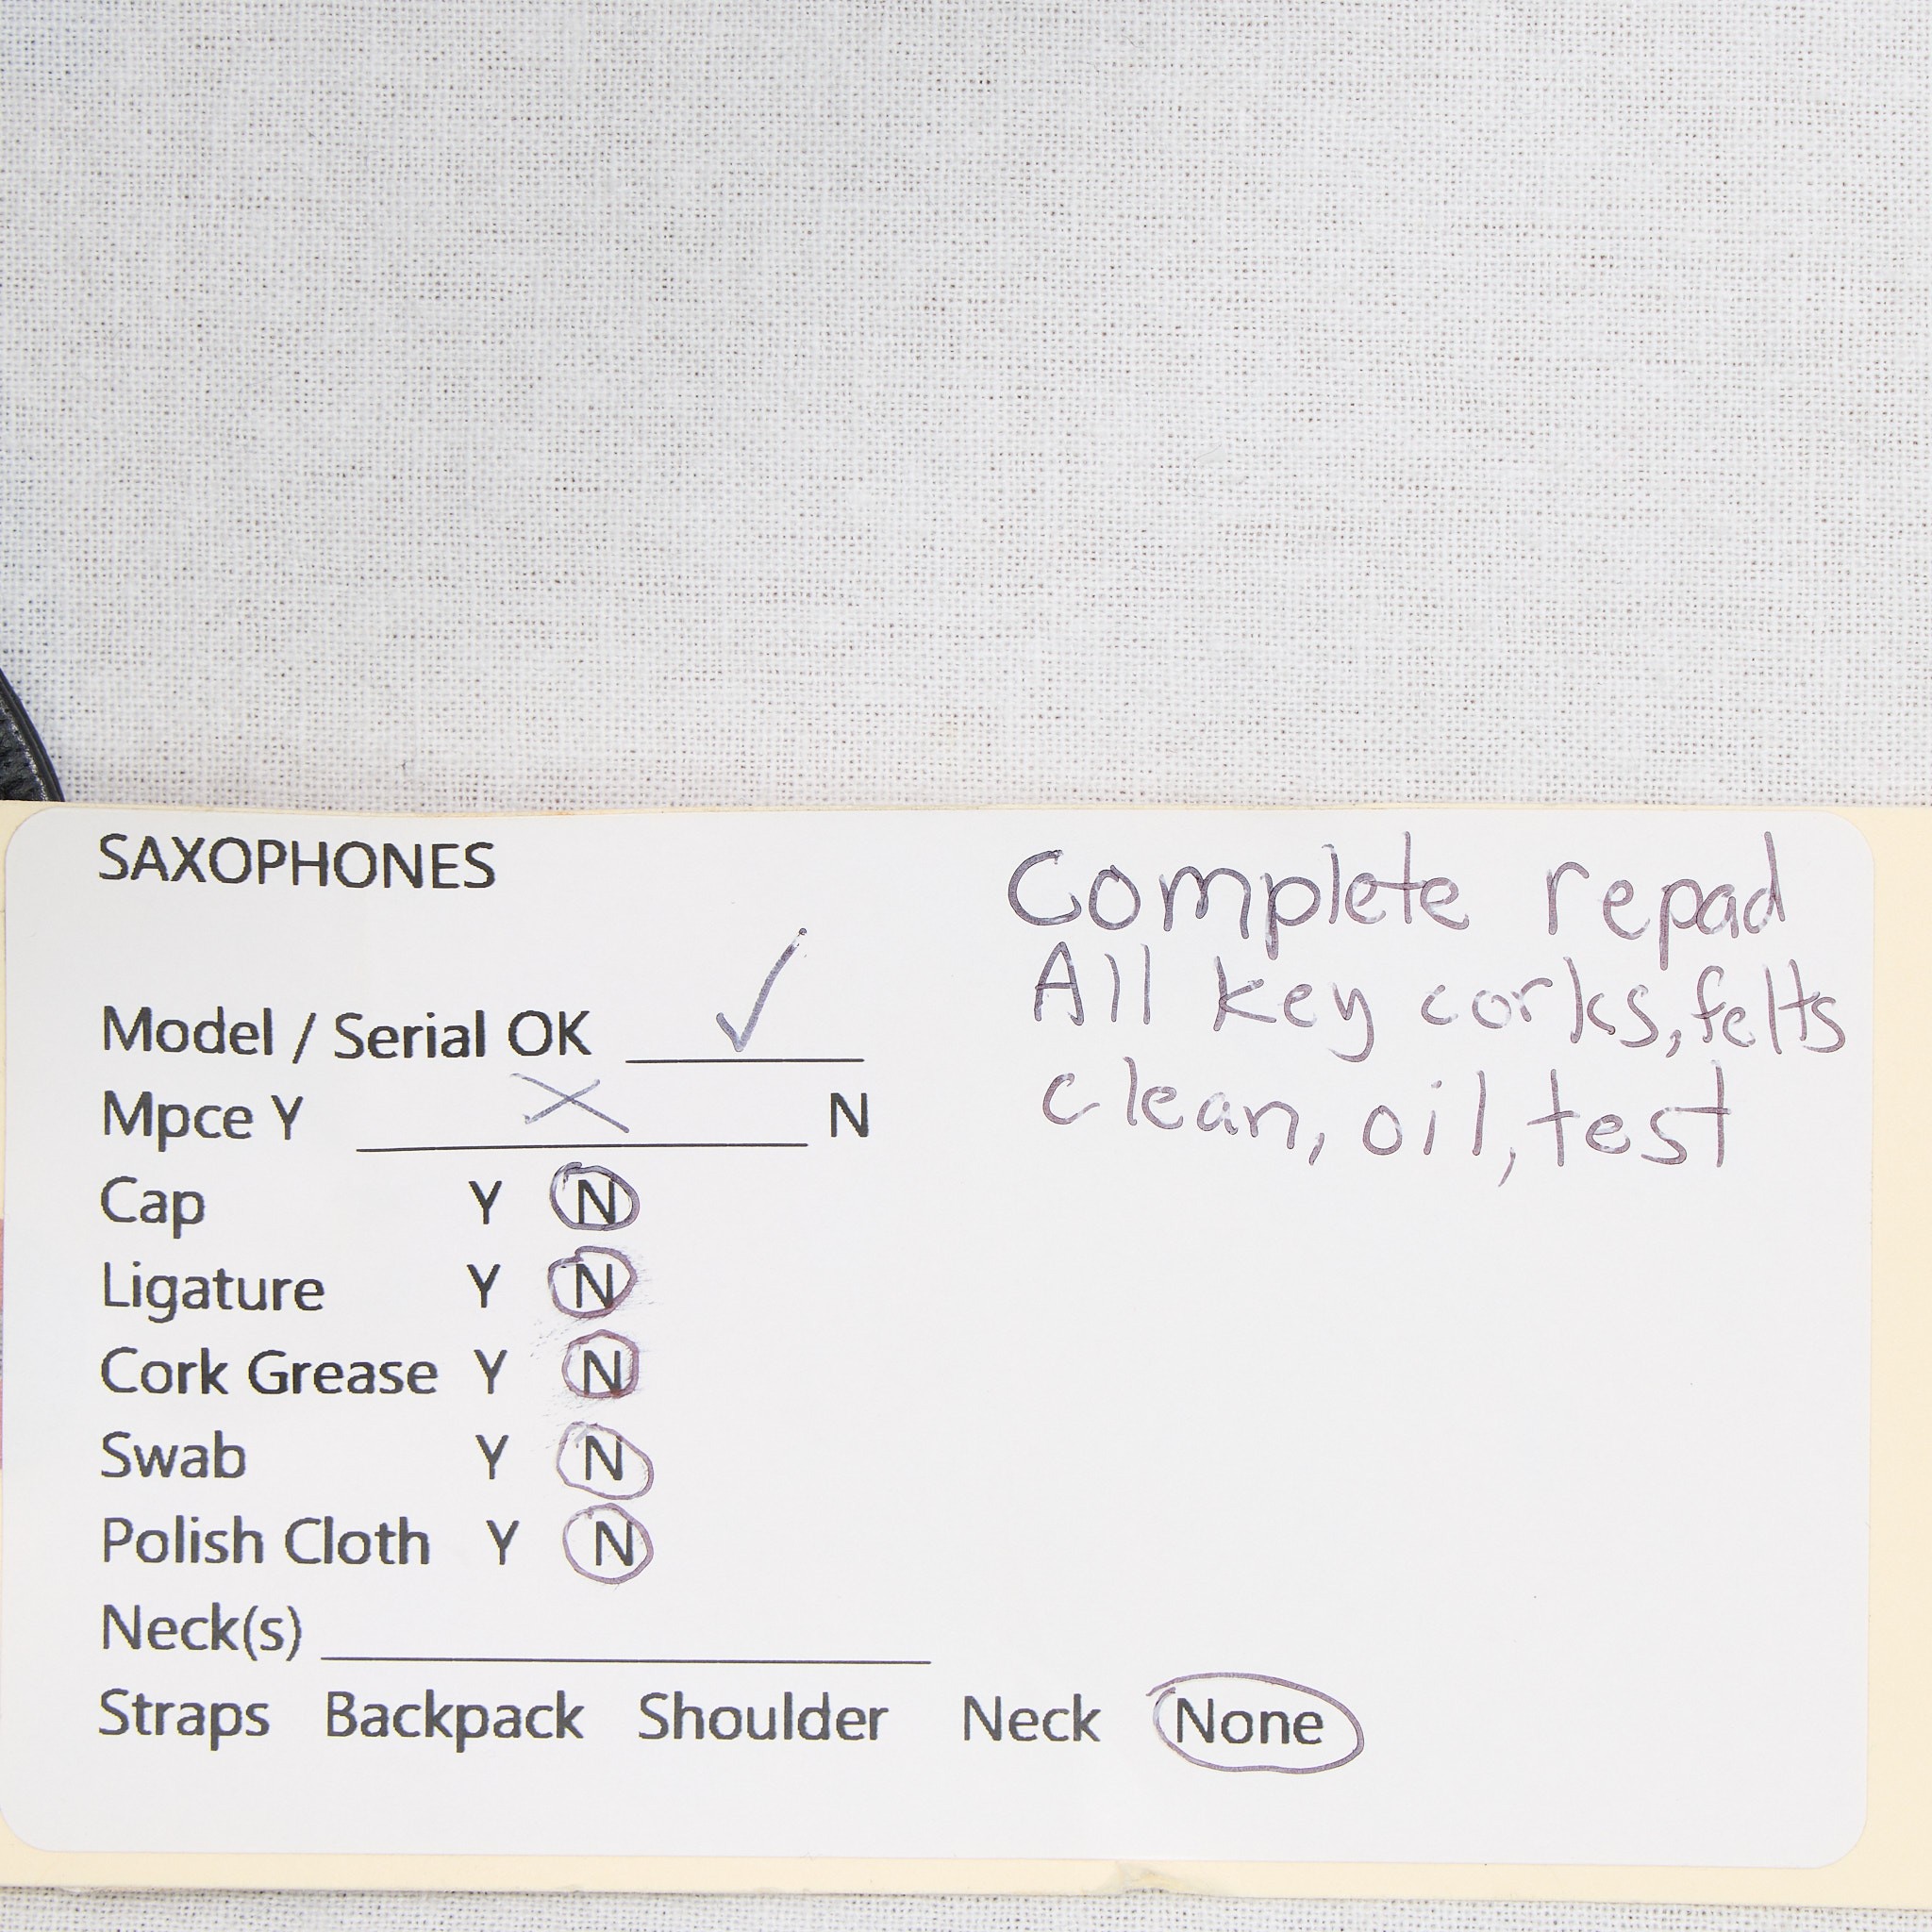 SAXOPHONES
Complete repad
All key corks, felts
clean, oil, test
Model / Serial OK ____ ✓
Mpce Y ____ X ____ N
Cap Y N
Ligature Y N
Cork Grease Y N
Swab Y N
Polish Cloth Y N
Neck(s) ____
Straps Backpack Shoulder Neck None